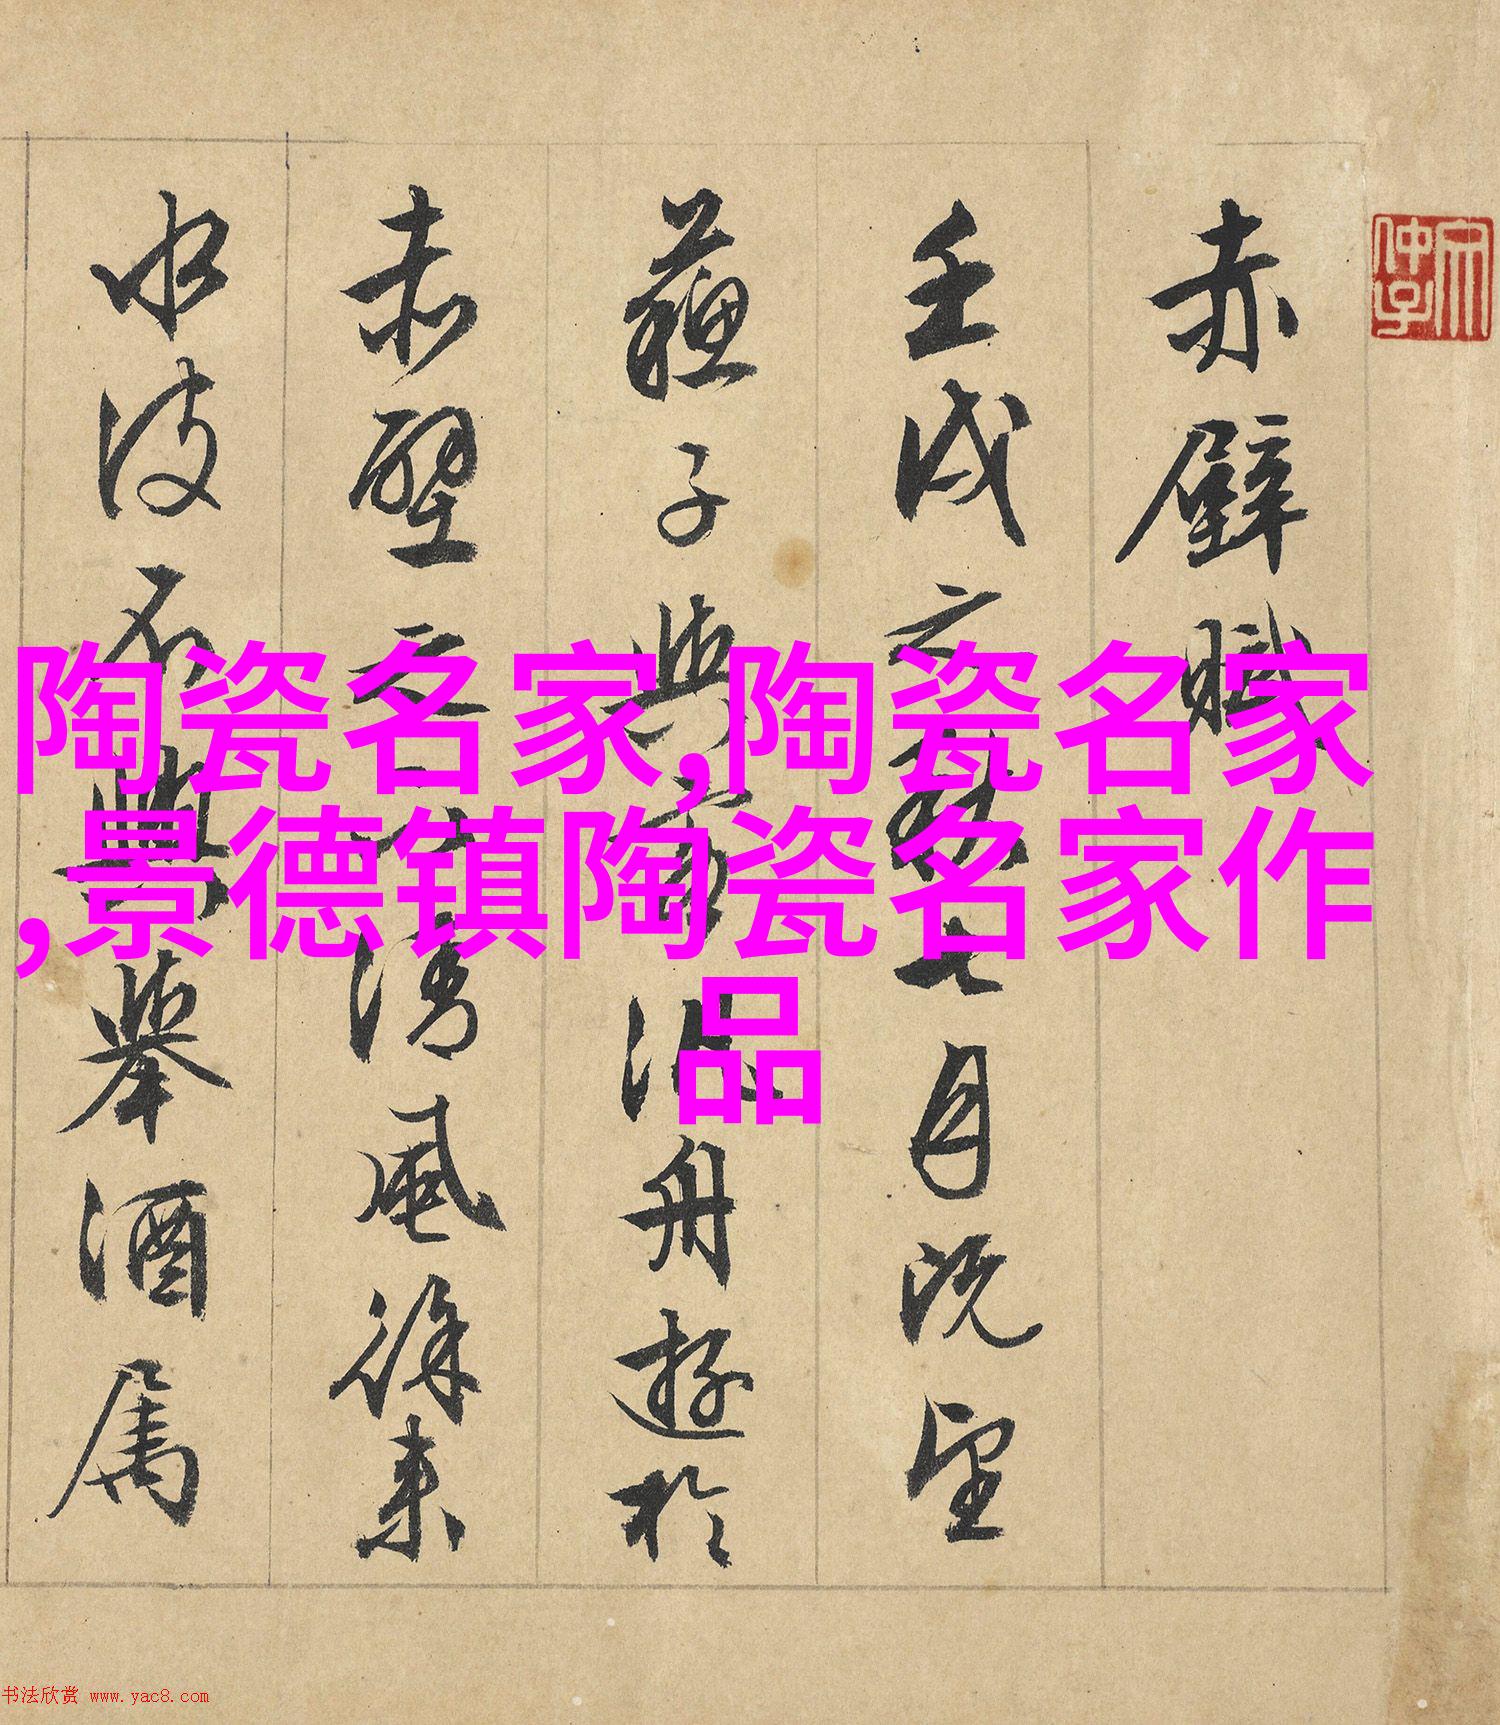 赤壁賦
壬戌之秋七月既望
蘇子與客泛舟遊於
赤壁之下清風徐來
水波不興舉酒屬
陶瓷名家,陶瓷名家
,景德镇陶瓷名家作
品
书法欣赏 www.yac8.com